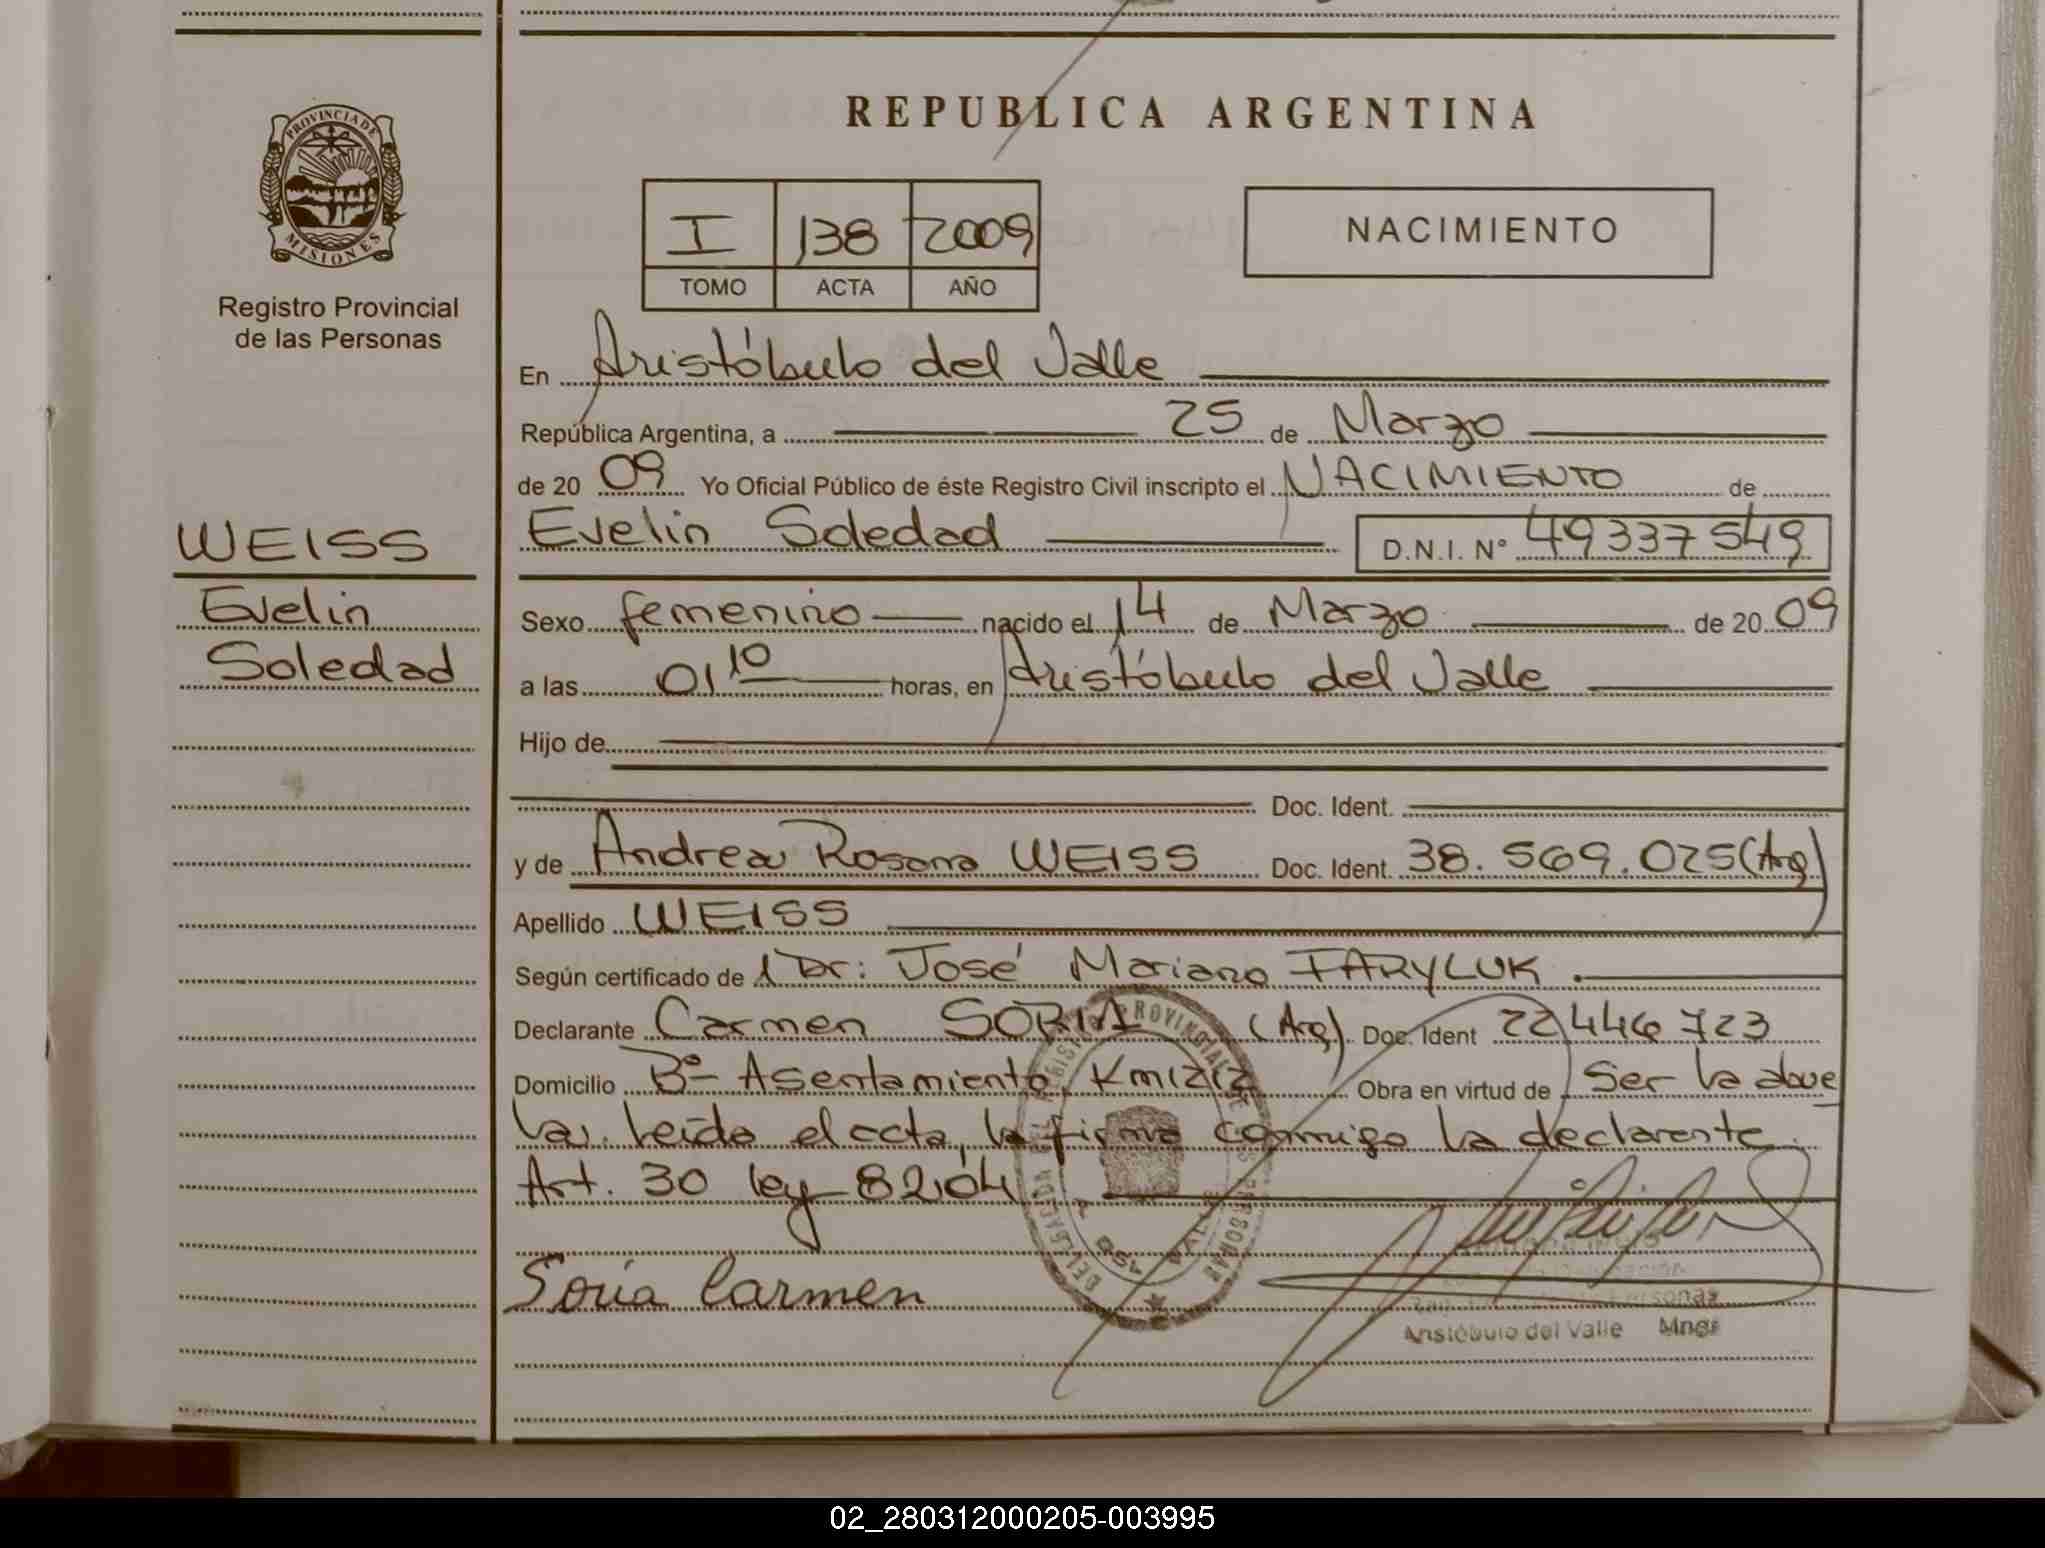 REPUBLICA ARGENTINA
PROVINCIA DE
MISIONES
Registro Provincial
de las Personas
I 138 2009
TOMO ACTA AÑO
NACIMIENTO
En Aristóbulo del Valle
República Argentina, a 25 de Marzo
de 20 09 Yo Oficial Público de éste Registro Civil inscripto el NACIMIENTO de
Evelin Soledad D.N.I. N° 49337549
WEISS
Evelin
Soledad
Sexo femenino nacido el 14 de Marzo de 20 09
a las 01 10 horas, en Aristóbulo del Valle
Hijo de
Doc. Ident.
y de Andrea Rosana WEISS Doc. Ident. 38.569.025 (Arg)
Apellido WEISS
Según certificado de Dr: José Mariano FARYLUK.
Declarante Carmen SORIA (Arg) Doc. Ident 22446723
Domicilio Bº Asentamiento Km1212 Obra en virtud de Ser la abue
la. Leida el acta, la firma conmigo la declarante.
Art. 30 ley 8204
Soria Carmen
Aristóbulo del Valle Mnes
02_280312000205-003995